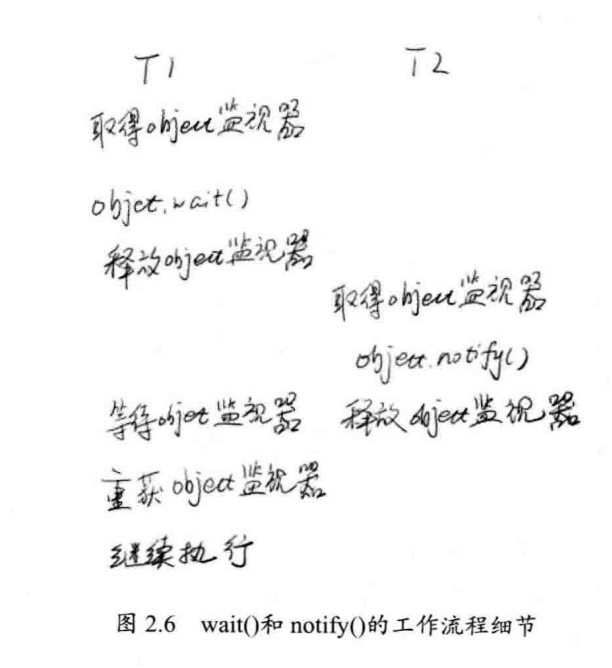 T1 T2
取得object监视器
objct.wait()
释放object监视器
取得object监视器
object.notify()
等待objet监视器 释放object监视器
重获object监视器
继续执行
图 2.6 wait()和 notify()的工作流程细节